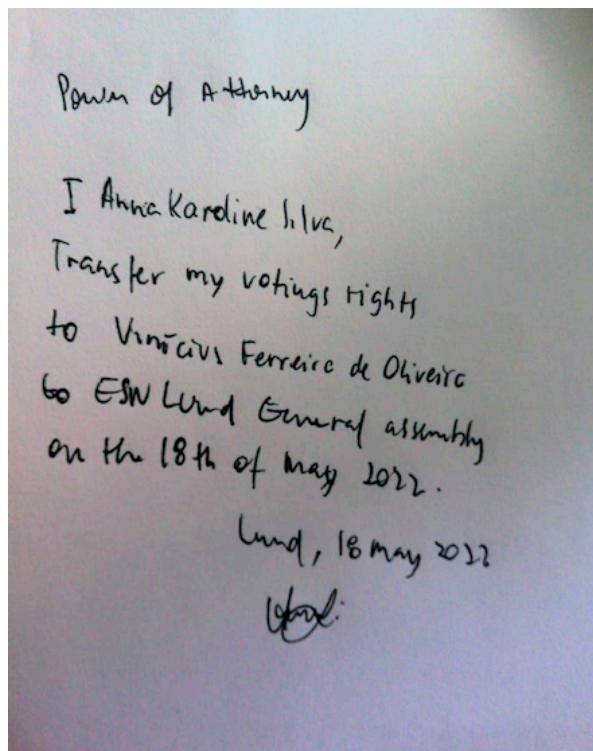 Power of Attorney
I Anna Karoline Silva,
Transfer my votings rights
to Vinícius Ferreira de Oliveira
to ESN Lund General assembly
on the 18th of may 2022.
Lund, 18 may 2022